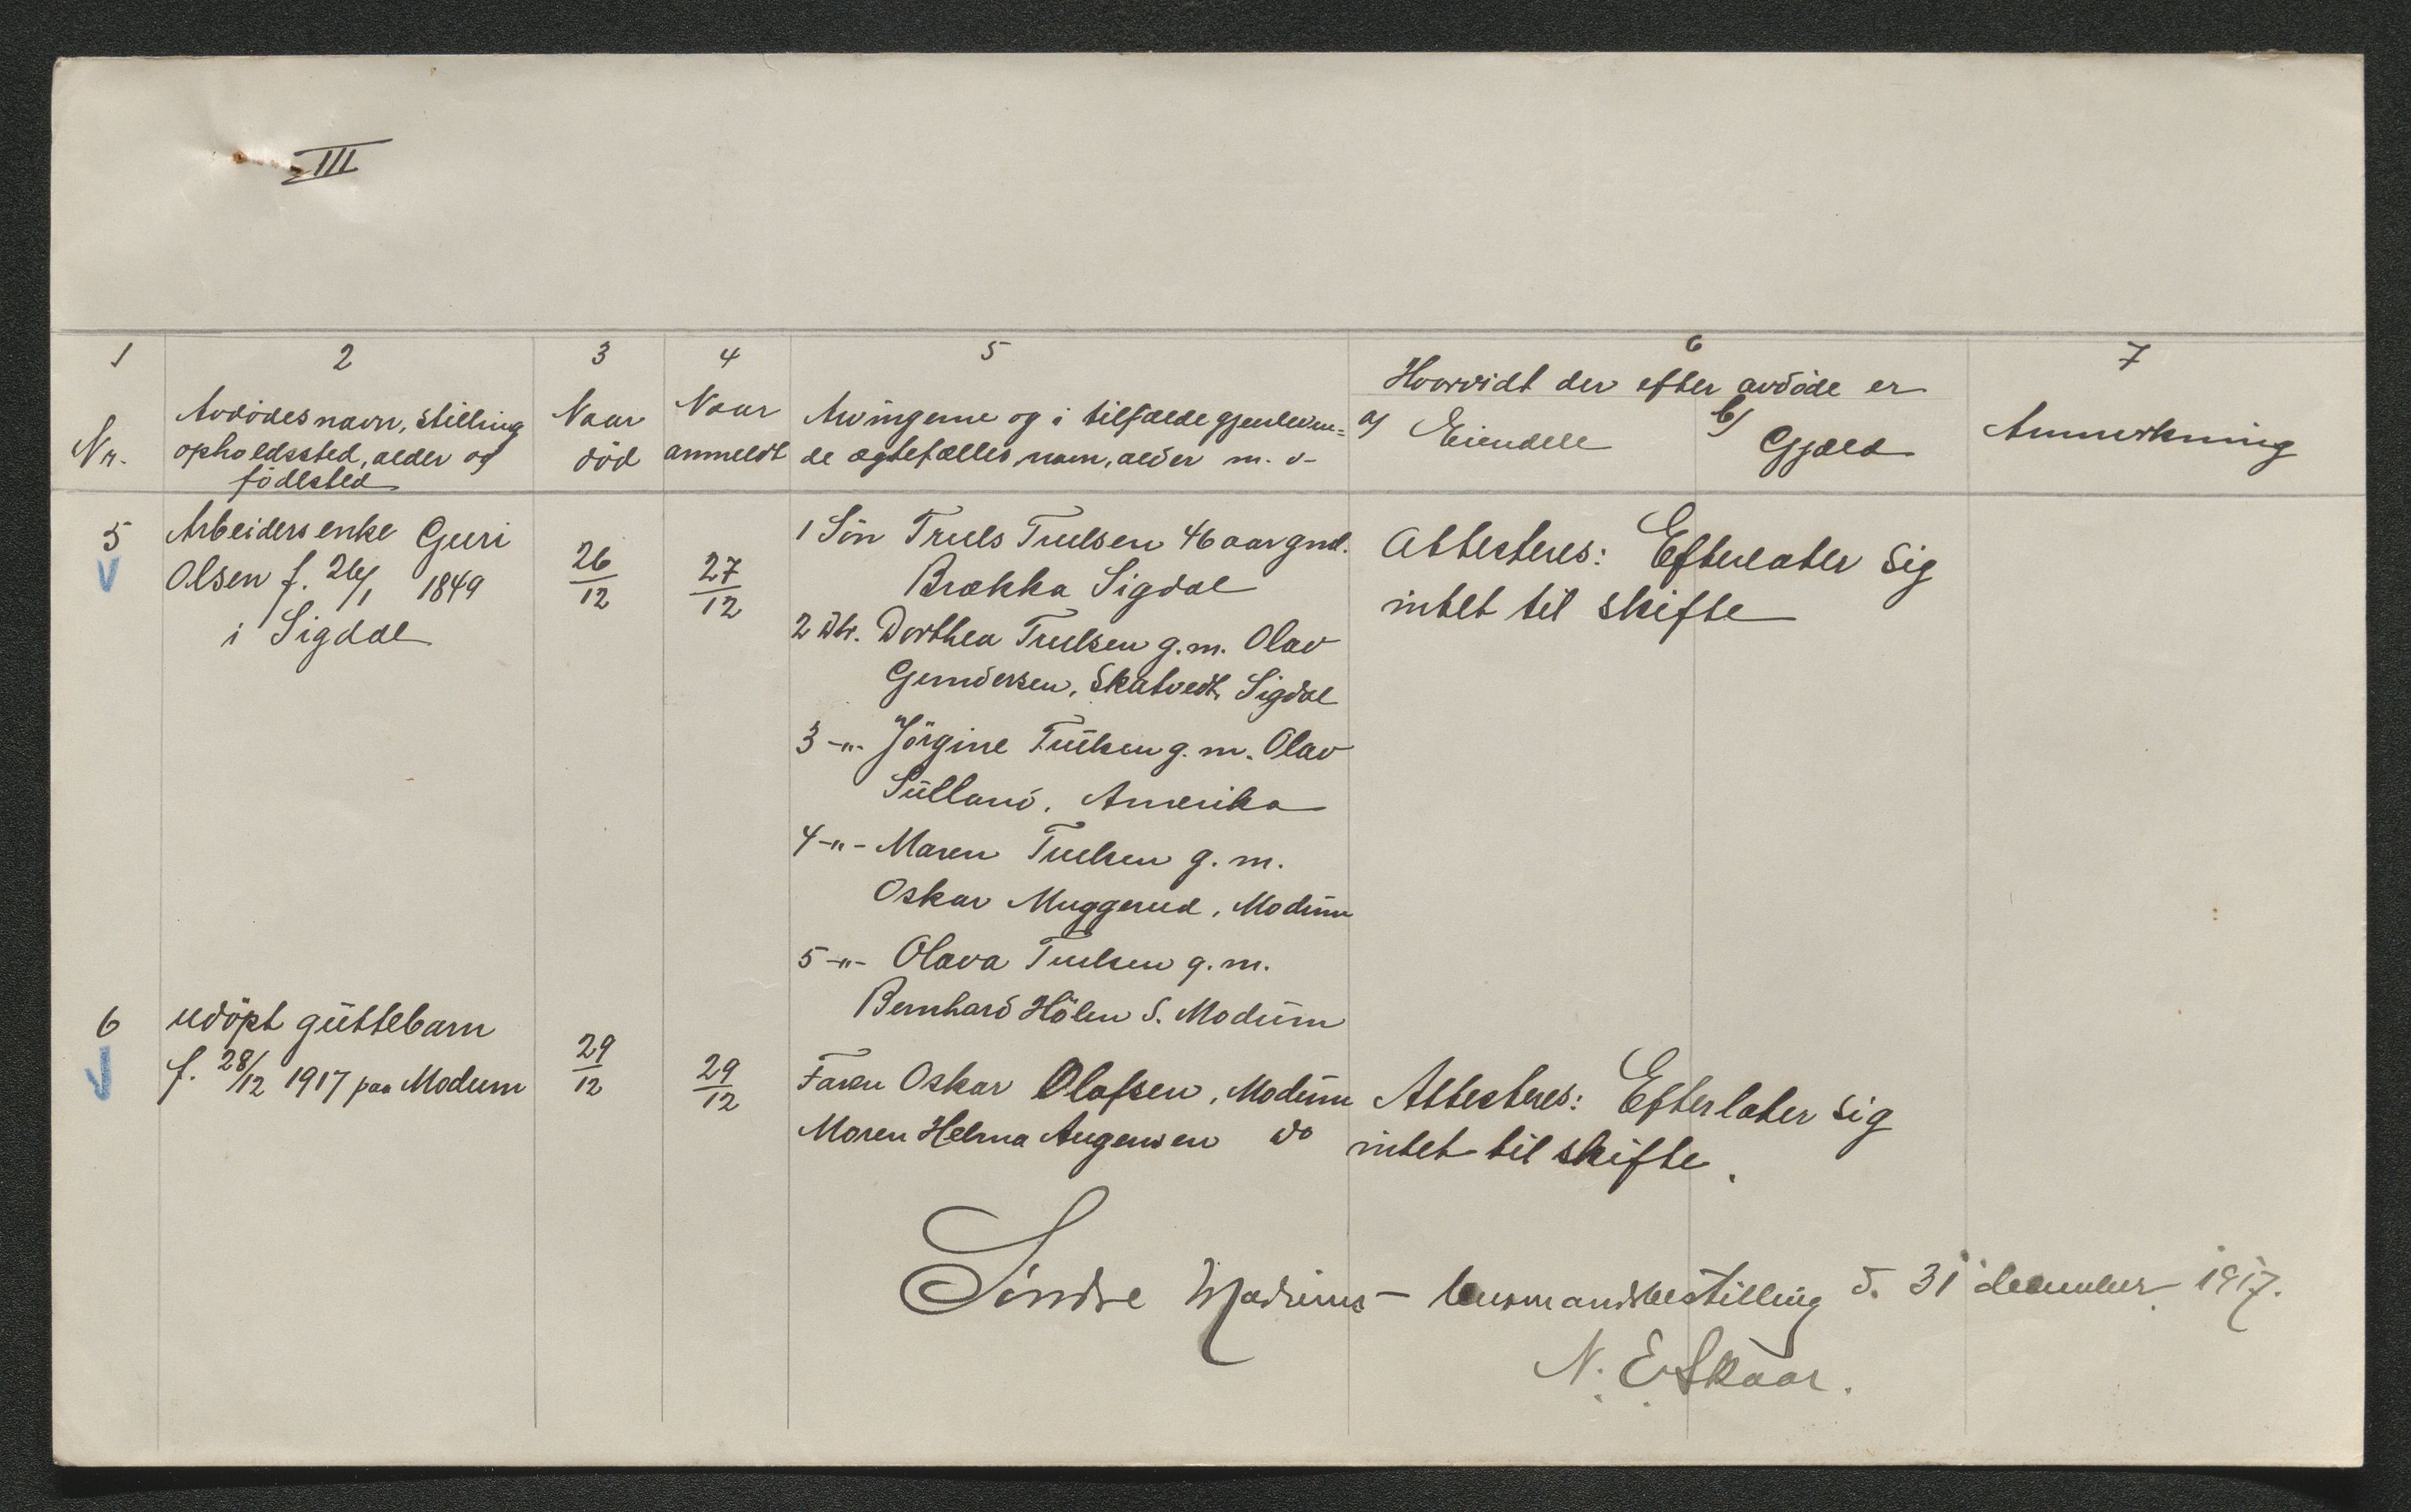 III
1 2 3 4 5 6 7
Nr.
Avdödes navn, stilling
opholdssted, alder og
födested
Naar
död
Naar
anmeldt
Arvingerne og i tilfælde gjenleven=
de ægtefælles navn, alder m. v.
Hvorvidt der efter avdöde er
a) Eiendele
b) Gjæld
Anmerkning
5
Arbeiders enke Guri
Olsen f. 26/1 1849
i Sigdal
26/12
27/12
1 Sön Truls Trulsen 46 aar gmd.
Brækka Sigdal
2 Dtr. Dorthea Trulsen g.m. Olav
Gundersen, Skatvedt, Sigdal
3 -"- Jörgine Trulsen g. m. Olav
Sülland, Amerika
4 -"- Maren Trulsen g. m.
Oskar Muggerud, Modum
5 -"- Olava Trulsen g. m.
Bernhard Hölen S. Modum
Attesteres: Efterlater sig
intet til skifte
6
udöpt guttebarn
f. 28/12 1917 paa Modum
29/12
29/12
Faren Oskar Olafsen, Modum
Moren Helma Augensen do
Attesteres: Efterlater sig
intet til skifte.
Söndre Modums - lensmandsbestilling d. 31 december 1917.
N. E. Skaar.